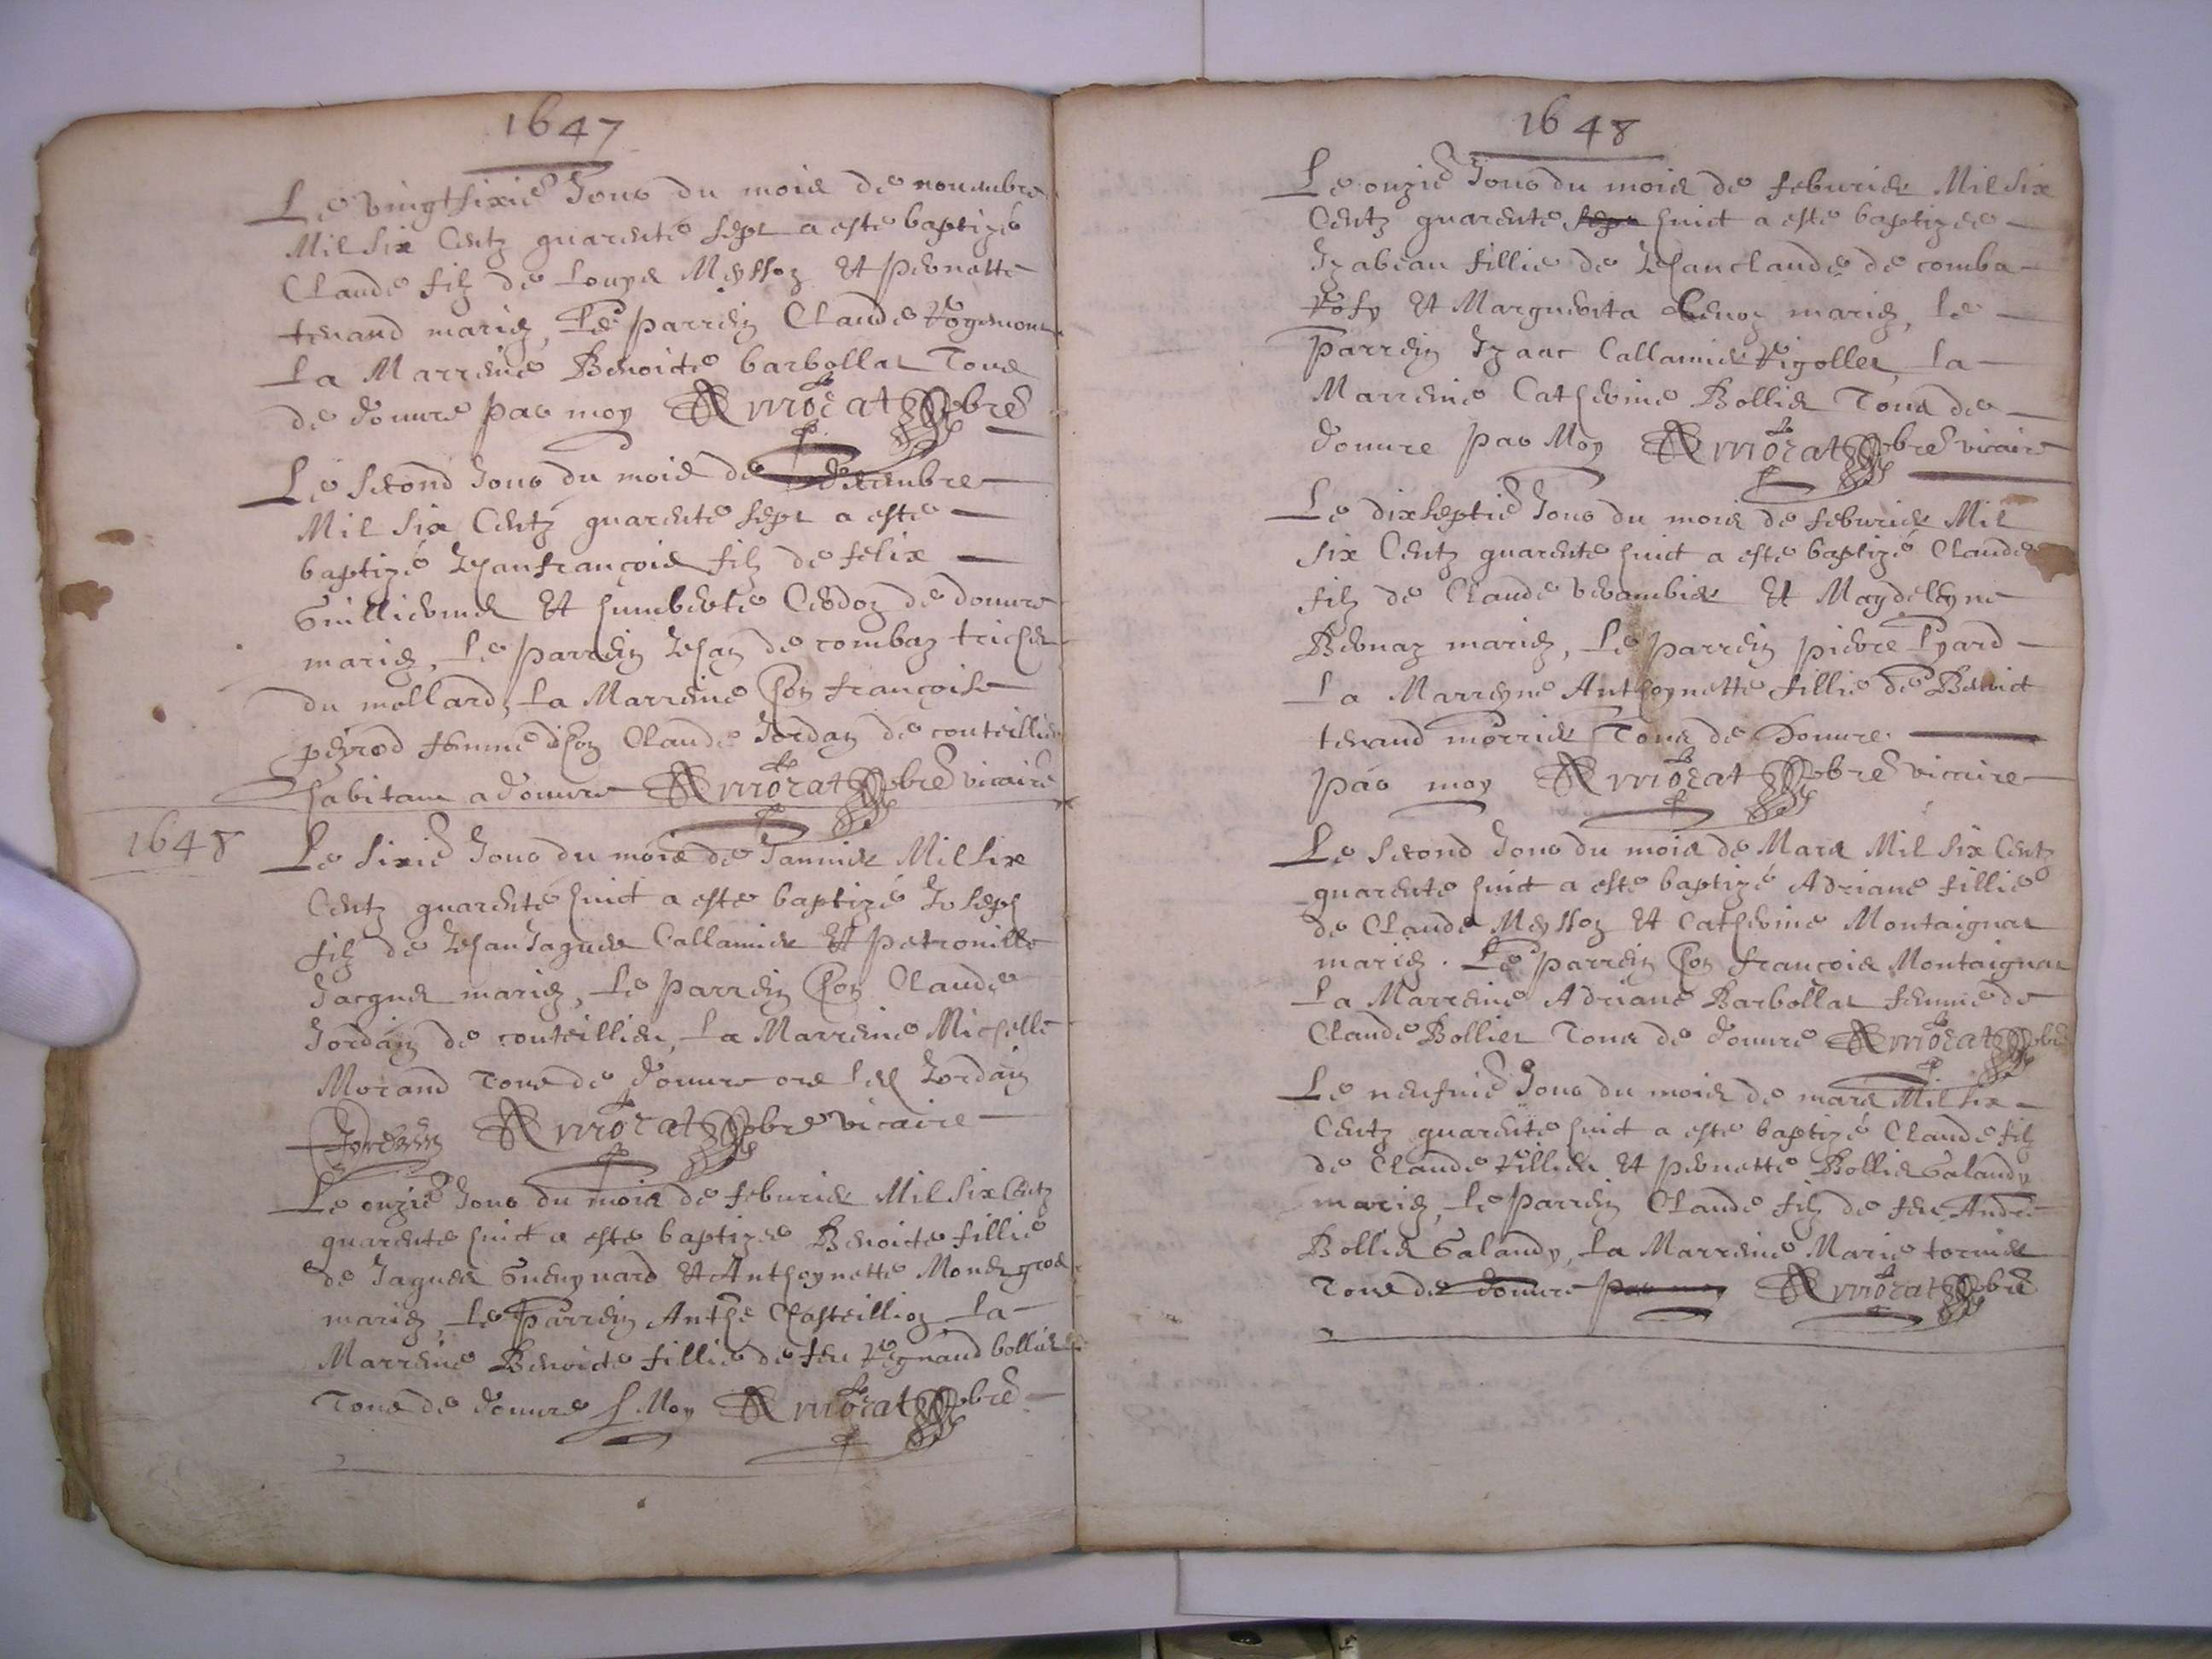 1647
Le vingtsixie Jour du mois de nouembre
Mil six Centz quarente sept a este baptizé
Claude filz de Louys Meyssoz et pernette
tenand mariez, Le parrein Claude
La Marreine Benoicte barbollat Tous
de Douure par moy Morat pbre
Le second Jour du mois de decembre
Mil six Centz quarente sept a este
baptizé Jehanfrançois filz de felix
Guilliermer et humberte Cerdoz de Douure
mariez, Le parrein Jehan de combaz
du mollard, La Marreine hon françoise
peyrod femme d'hon Claude Jordan de conteillier
habitant a Douure Morat pbre vicaire
1648
Le sixie Jour du mois de Januier Mil six
Centz quarente huict a este baptizé Joseph
filz de Jehan Jaques Callamier et petronille
Jacquer mariez, Le parrein hon Claude
Jordain de conteillier, La Marreine Michelle
Morand Tous de Douure Jordain
Jordain Morat pbre vicaire
Le onzie Jour du mois de feburier Mil six Centz
quarente huict a este baptizee Benoicte fillie
de Jaques Gueynard et Anthoynette
mariez, Le Parrein Anthe Chasteillioz La
Marreine Benoicte fillie de feu Regnaud bollier
Tous de Douure p Moy Morat pbre
1648
Le onzie Jour du mois de feburier Mil six
Centz quarente huict a este baptizee
Izabeau fillie de Jehanclaude de comba
et Marguerita mariez, le
Parrein Izaac Callamier Rigollet, la
Marreine Catherine Bollier Tous de
Douure par Moy Morat pbre vicaire
Le dixseptie Jour du mois de feburier Mil
six Centz quarente huict a este baptizé Claude
filz de Claude verambier et Magdeleyne
Bernaz mariez, Le parrein pierre Lyard
La Marreyne Anthoynette fillie de Benoict
tenand morrier Tous de Douure
par moy Morat pbre vicaire
Le second Jour du mois de Mars Mil six Centz
quarente huict a este baptizé Adriane fillie
de Claude Meyssoz et Catherine Montaignat
mariez. Le parrein hon françois Montaignat
La Marreine Adriane Barbollat femme de
Claude Bollier Tous de Douure Morat pbre
Le neufuie Jour du mois de mars Mil six
Centz quarente huict a este baptizé Claude filz
de Claude Villier et pernette Bollier Galandy
mariez, Le Parrein Claude filz de feu Andre
Bollier Galandy, La Marreine Marie tornier
Tous de Douure par moy Morat pbre